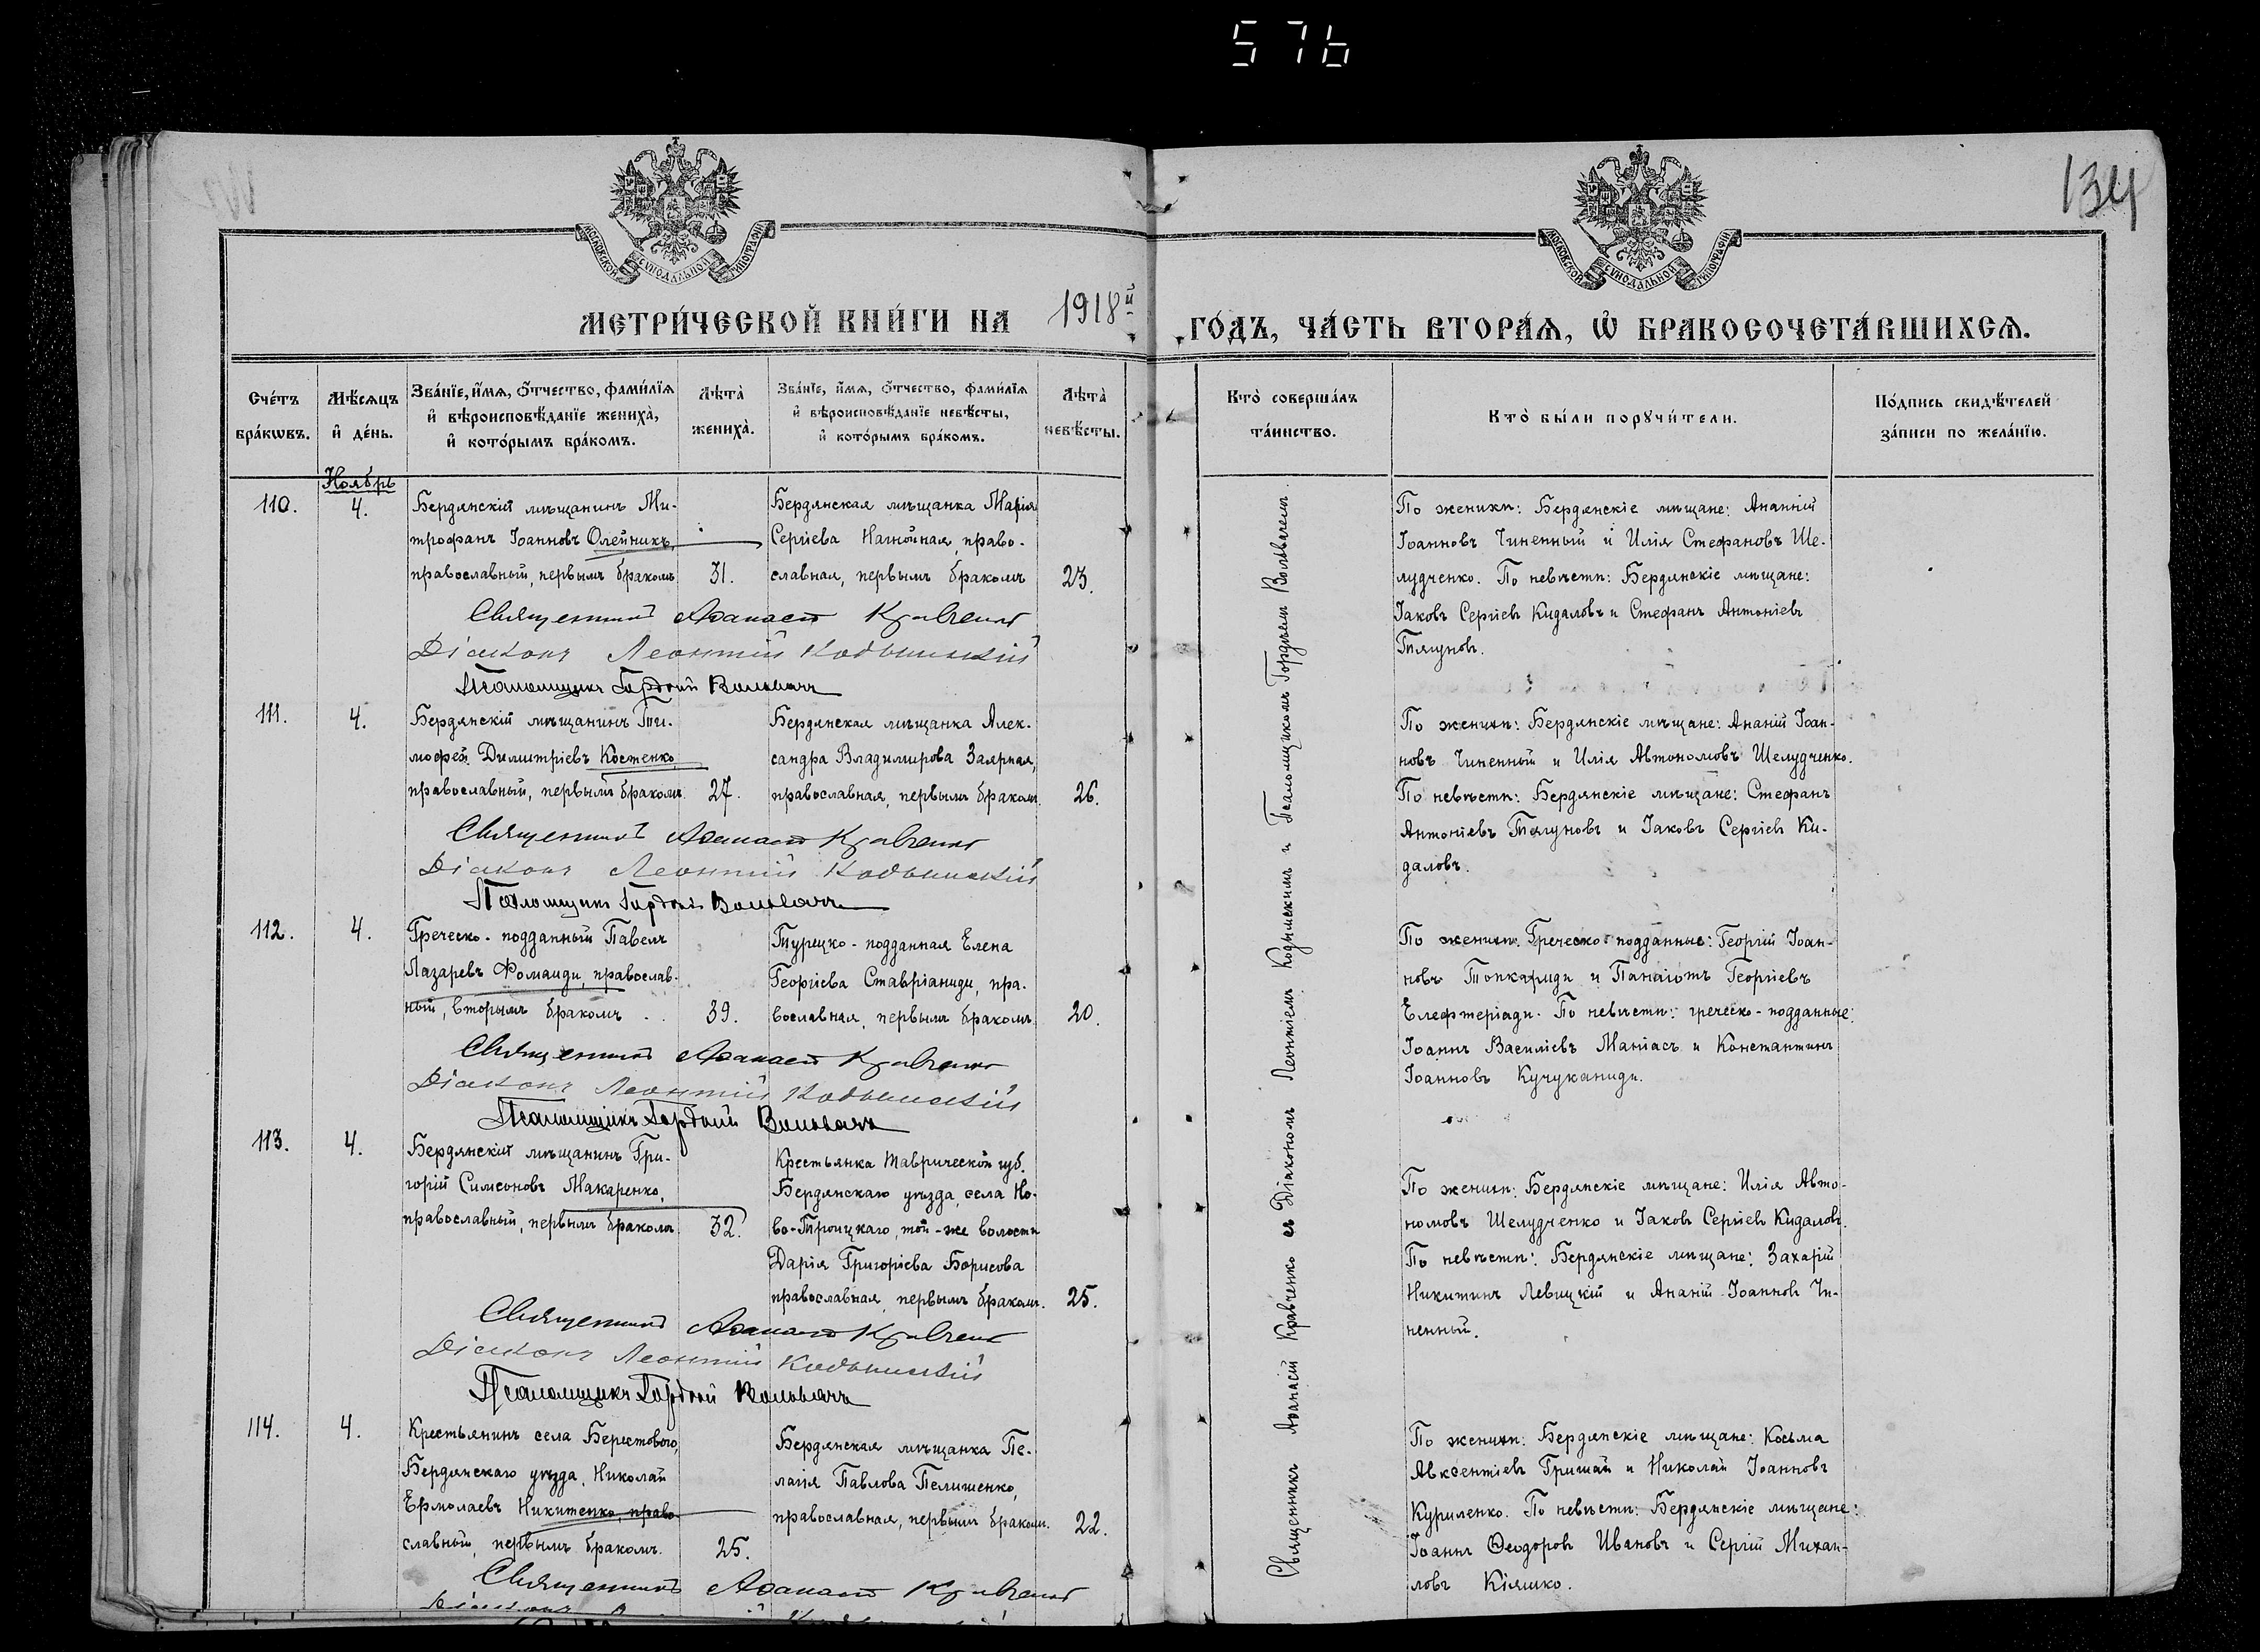 576
134
МОСКОВСКОЙ СѴНОДАЛЬНОЙ ТИПОГРАФІИ
МОСКОВСКОЙ СѴНОДАЛЬНОЙ ТИПОГРАФІИ
МЕТРИ́ЧЕСКОЙ КНИ́ГИ НА 1918й ГО́ДЪ, ЧА́СТЬ ВТОРА́Я, Ѡ БРАКОСОЧЕТА́ВШИХСЯ.
Сче́тъ бра́кѡвъ.
Мѣ́сяцъ и де́нь.
Зва́нїе, и́мя, о́тчество, фами́лїя и вѣроисповѣ́данїе жениха̀, и кото́рымъ бра́комъ.
Лѣта̀ жениха̀.
Зва́нїе, и́мя, о́тчество, фами́лїя и вѣроисповѣ́данїе невѣ́сты, и кото́рымъ бра́комъ.
Лѣта̀ невѣ́сты.
Кто̀ соверша́лъ та́инство.
Кто̀ бы́ли порꙋчи́тели.
По́дпись свидѣ́телей за́писи по жела́нїю.
Ноябрь
110.
4.
Бердянскій мѣщанинъ Ми-
трофанъ Іоанновъ Олейникъ,
православный, первымъ бракомъ
31.
Бердянская мѣщанка Марія
Сергіева Нагнойная, право-
славная, первымъ бракомъ
23.
По женихѣ: Бердянскіе мѣщане: Ананій
Іоанновъ Чиненный и Илія Стефановъ Ше-
лудченко. По невѣстѣ: Бердянскіе мѣщане:
Іаковъ Сергіевъ Кидаловъ и Стефанъ Антоніевъ
Тягуновъ.
Священникъ Аѳанасій Кравченко
Діаконъ Леонтій Кодымскій
Псаломщикъ Гордій Воловачъ
111.
4.
Бердянскій мѣщанинъ Ти-
мофей Димитріевъ Костенко,
православный, первымъ бракомъ
27.
Бердянская мѣщанка Алек-
сандра Владимирова Заярная,
православная, первымъ бракомъ.
26.
По женихѣ: Бердянскіе мѣщане: Ананій Іоан-
новъ Чиненный и Илія Автономовъ Шелудченко.
По невѣстѣ: Бердянскіе мѣщане: Стефанъ
Антоніевъ Тягуновъ и Іаковъ Сергіевъ Ки-
даловъ.
Священникъ Аѳанасій Кравченко
Діаконъ Леонтій Кодымскій
Псаломщикъ Гордій Воловачъ
112.
4.
Греческо-подданный Павелъ
Лазаревъ Фомаиди, православ-
ный, вторымъ бракомъ
39.
Турецко-подданная Елена
Георгіева Ставріаниди, пра-
вославная, первымъ бракомъ
20.
По женихѣ: Греческо подданные: Георгій Іоан-
новъ Топкариди и Панаіотъ Георгіевъ
Елефтеріади. По невѣстѣ: греческо-подданные:
Іоаннъ Василіевъ Маніасъ и Константинъ
Іоанновъ Кучуканиди.
Священникъ Аѳанасій Кравченко
Діаконъ Леонтій Кодымскій
Псаломщикъ Гордій Воловачъ
113.
4.
Бердянскій мѣщанинъ Гри-
горій Симеоновъ Макаренко,
православный, первымъ бракомъ
32.
Крестьянка Таврической губ.
Бердянскаго уѣзда, села Но-
во-Троицкаго, той-же волости
Дарія Григоріева Борисова
православная, первымъ бракомъ.
25.
По женихѣ: Бердянскіе мѣщане: Илія Авто-
номовъ Шелудченко и Іаковъ Сергіевъ Кидаловъ.
По невѣстѣ: Бердянскіе мѣщане: Захарій
Никитинъ Левицкій и Ананій Іоанновъ Чи-
ненный.
Священникъ Аѳанасій Кравченко
Діаконъ Леонтій Кодымскій
Псаломщикъ Гордій Воловачъ
114.
4.
Крестьянинъ села Берестового,
Бердянскаго уѣзда, Николай
Ермолаевъ Никитенко, право-
славный, первымъ бракомъ.
25.
Бердянская мѣщанка Пе-
лагія Павлова Пелишенко,
православная, первымъ бракомъ.
22.
По женихѣ: Бердянскіе мѣщане: Косьма
Авксентіевъ Гришай и Николай Іоанновъ
Куриленко. По невѣстѣ: Бердянскіе мѣщане:
Іоаннъ Ѳеодоровъ Ивановъ и Сергій Михаи-
ловъ Кіяшко.
Священникъ Аѳанасій Кравченко
Священникъ Аѳанасій Кравченко съ Діакономъ Леонтіемъ Кодымскимъ и Псаломщикомъ Гордіемъ Воловачемъ.